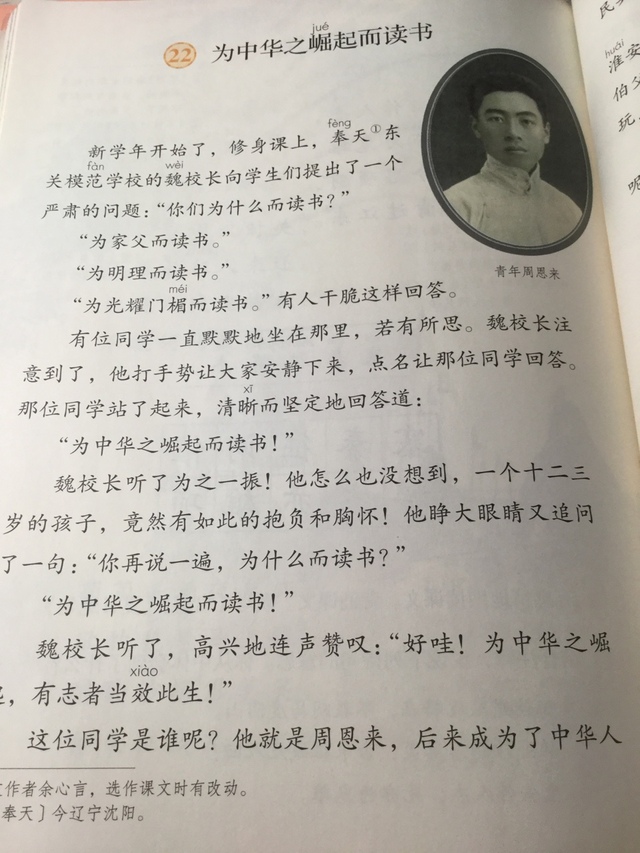 jué
22 为中华之崛起而读书
fèng
新学年开始了，修身课上，奉天①东
fàn wèi
关模范学校的魏校长向学生们提出了一个
严肃的问题：“你们为什么而读书？”
“为家父而读书。”
“为明理而读书。”
méi
“为光耀门楣而读书。”有人干脆这样回答。
青年周恩来
有位同学一直默默地坐在那里，若有所思。魏校长注
意到了，他打手势让大家安静下来，点名让那位同学回答。
xī
那位同学站了起来，清晰而坚定地回答道：
“为中华之崛起而读书！”
魏校长听了为之一振！他怎么也没想到，一个十二三
岁的孩子，竟然有如此的抱负和胸怀！他睁大眼睛又追问
了一句：“你再说一遍，为什么而读书？”
“为中华之崛起而读书！”
魏校长听了，高兴地连声赞叹：“好哇！为中华之崛
xiào
，有志者当效此生！”
这位同学是谁呢？他就是周恩来，后来成为了中华人
作者余心言，选作课文时有改动。
奉天〕今辽宁沈阳。
民
huái
淮安
伯父
玩，
呢